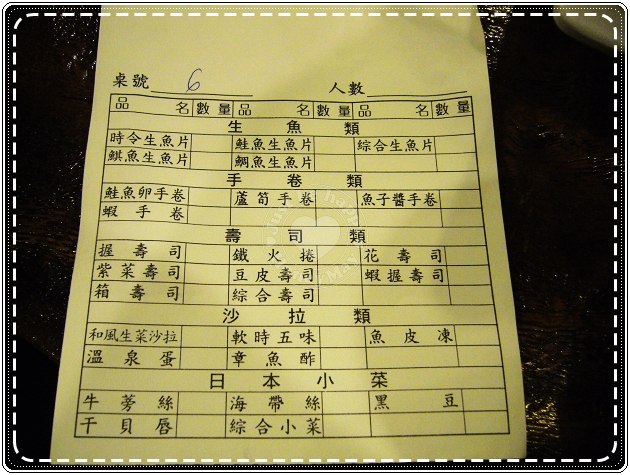 桌號 6 人數
品名 數量 品名 數量 品名 數量
生魚類
時令生魚片 鮭魚生魚片 綜合生魚片
鯕魚生魚片 鯛魚生魚片
手卷類
鮭魚卵手卷 蘆筍手卷 魚子醬手卷
蝦手卷
壽司類
握壽司 鐵火捲 花壽司
紫菜壽司 豆皮壽司 蝦握壽司
箱壽司 綜合壽司
沙拉類
和風生菜沙拉 軟時五味 魚皮凍
溫泉蛋 章魚酢
日本小菜
牛蒡絲 海帶絲 黑豆
干貝唇 綜合小菜